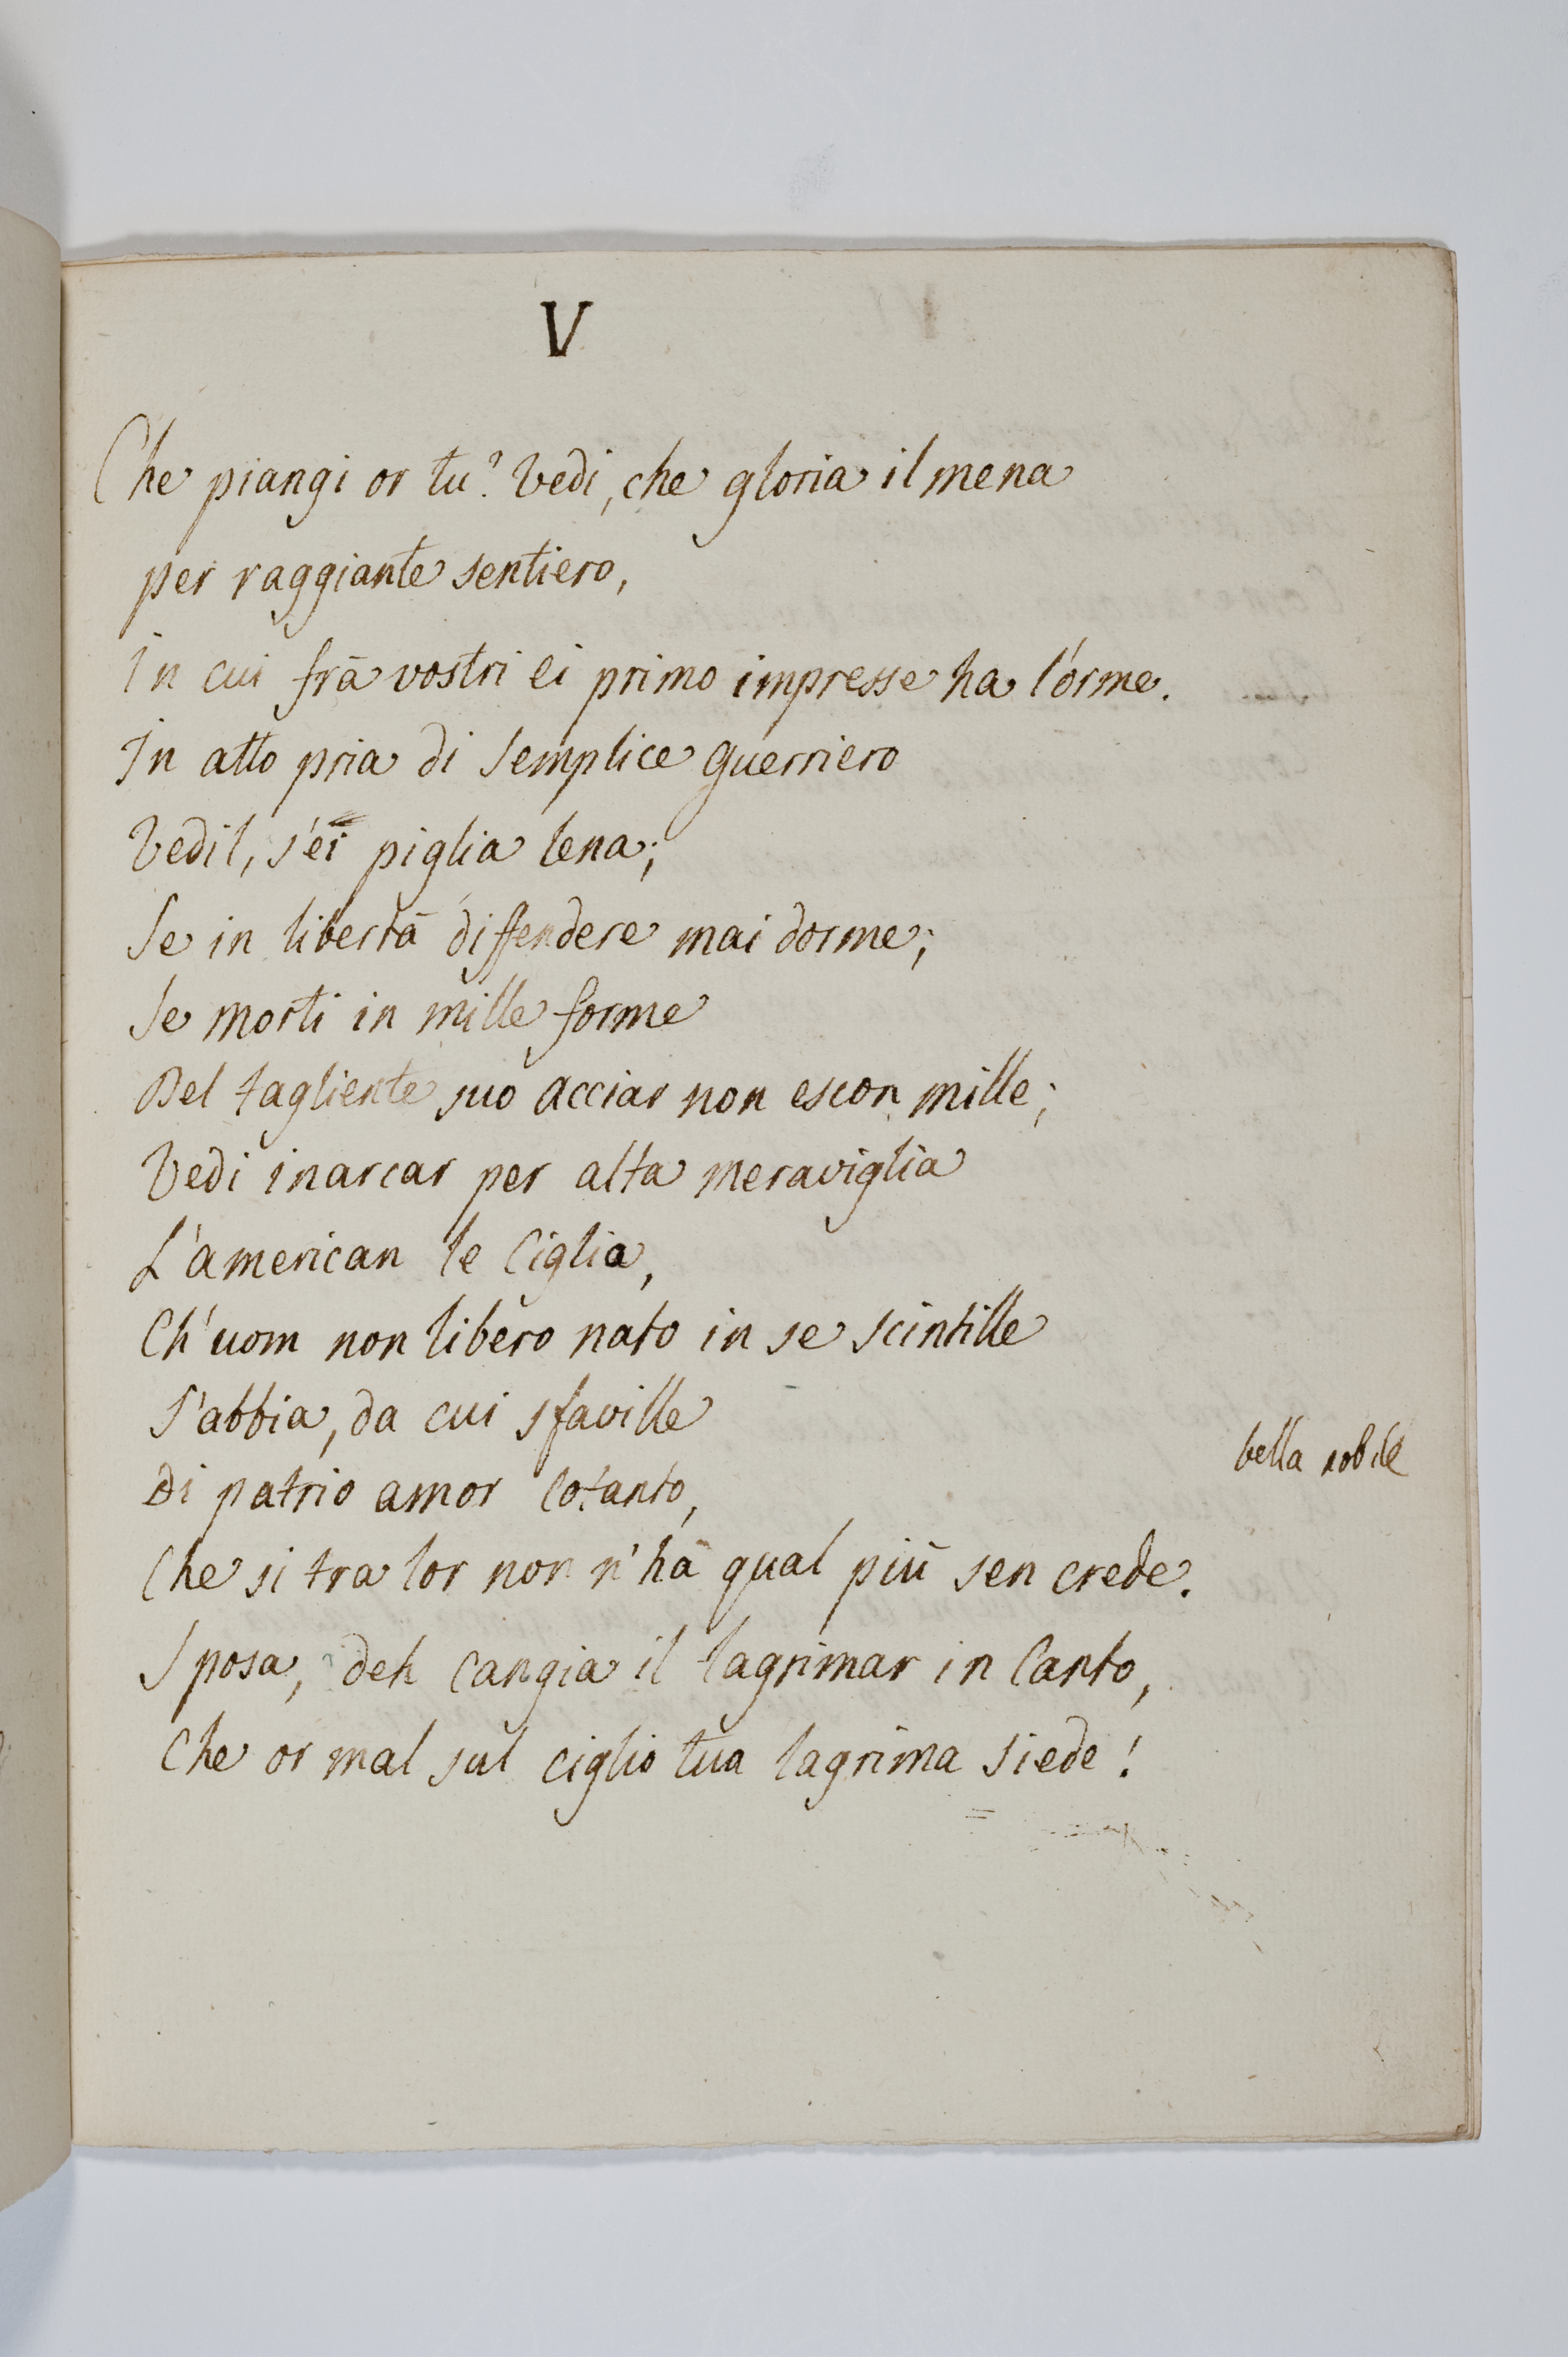 V
Che piangi or tu? Vedi, che gloria il mena
per raggiante sentiero,
In cui frà vostri ei primo impresse ha l'orme.
In atto pria di semplice guerriero
Vedil, s'ei piglia lena;
Se in libertà diffendere mai dorme;
Se morti in mille forme
Del tagliente suo acciar non escon mille;
Vedi inarcar per alta meraviglia
L'american le Ciglia,
Ch'uom non libero nato in se scintille
S'abbia, da cui sfaville
Di patrio amor cotanto,
bella nobile
Che si tra lor non n'hà qual più sen crede.
Sposa, deh cangia il lagrimar in Canto,
Che or mal sul ciglio tua lagrima siede!